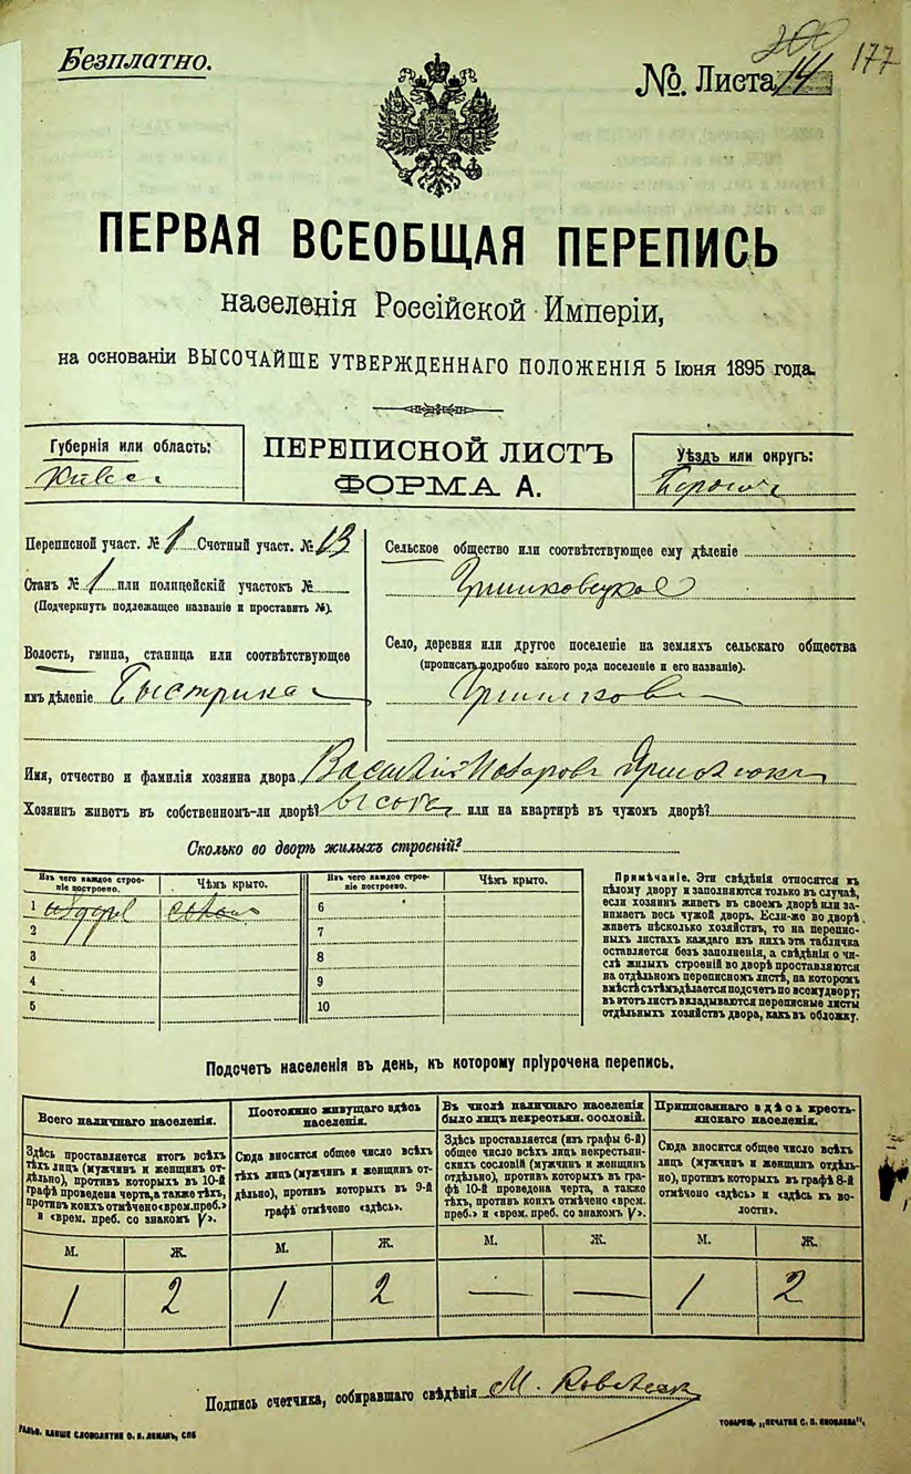 Безплатно.
200 177
№. Листа 14
ПЕРВАЯ ВСЕОБЩАЯ ПЕРЕПИСЬ
населенія Россійской Имперіи,
на основаніи ВЫСОЧАЙШЕ УТВЕРЖДЕННАГО ПОЛОЖЕНІЯ 5 Іюня 1895 года.
Губернія или область:
ПЕРЕПИСНОЙ ЛИСТЪ
ФОРМА А.
Уѣздъ или округъ:
Переписной участ. № 1 Счетный участ. № 13
Станъ № 1 или полицейскій участокъ №
(Подчеркнуть подлежащее названіе и проставить №).
Волость, гмина, станица или соотвѣтствующее
имъ дѣленіе
Сельское общество или соотвѣтствующее ему дѣленіе
Гришковецкое
Село, деревня или другое поселеніе на земляхъ сельскаго общества
(прописать подробно какого рода поселеніе и его названіе).
Имя, отчество и фамилія хозяина двора Василій
Хозяинъ живетъ въ собственномъ-ли дворѣ? или на квартирѣ въ чужомъ дворѣ?
Сколько во дворѣ жилыхъ строеній?
Изъ чего каждое строеніе построено.
Чѣмъ крыто.
Изъ чего каждое строеніе построено.
Чѣмъ крыто.
1 6
2 7
3 8
4 9
5 10
Примѣчаніе. Эти свѣдѣнія относятся къ
цѣлому двору и заполняются только въ случаѣ,
если хозяинъ живетъ въ своемъ дворѣ или за-
нимаетъ весь чужой дворъ. Если-же во дворѣ
живетъ нѣсколько хозяйствъ, то на перепис-
ныхъ листахъ каждаго изъ нихъ эта табличка
оставляется безъ заполненія, а свѣдѣнія о чи-
слѣ жилыхъ строеній во дворѣ проставляются
на отдѣльномъ переписномъ листѣ, на которомъ
вмѣстѣ съ тѣмъ дѣлается подсчетъ по всему двору;
въ этотъ листъ вкладываются переписные листы
отдѣльныхъ хозяйствъ двора, какъ въ обложку.
Подсчетъ населенія въ день, къ которому пріурочена перепись.
Всего наличнаго населенія.
Здѣсь проставляется итогъ всѣхъ
тѣхъ лицъ (мужчинъ и женщинъ от-
дѣльно), противъ которыхъ въ 10-й
графѣ проведена черта, а также тѣхъ,
противъ коихъ отмѣчено «врем. преб.»
и «врем. преб. со знакомъ V».
Постоянно живущаго здѣсь
населенія.
Сюда вносится общее число всѣхъ
тѣхъ лицъ (мужчинъ и женщинъ от-
дѣльно), противъ которыхъ въ 9-й
графѣ отмѣчено «здѣсь».
Въ числѣ наличнаго населенія
было лицъ некрестьян. сословій.
Здѣсь проставляется (изъ графы 6-й)
общее число всѣхъ лицъ некрестьян-
скихъ сословій (мужчинъ и женщинъ
отдѣльно), противъ которыхъ въ гра-
фѣ 10-й проведена черта, а также
тѣхъ, противъ коихъ отмѣчено «врем.
преб.» и «врем. преб. со знакомъ V».
Приписаннаго здѣсь кресть-
янскаго населенія.
Сюда вносится общее число всѣхъ
лицъ (мужчинъ и женщинъ отдѣль-
но), противъ которыхъ въ графѣ 8-й
отмѣчено «здѣсь» и «здѣсь къ во-
лости».
М. Ж. М. Ж. М. Ж. М. Ж.
1 2 1 2 — — 1 2
Подпись счетчика, собиравшаго свѣдѣнія М.
ГАЛЬВ. КЛИШЕ СЛОВОЛИТНИ О. И. ЛЕМАНЪ, СПБ
ТОВАРИЩ. „ПЕЧАТНЯ С. П. ЯКОВЛЕВА".